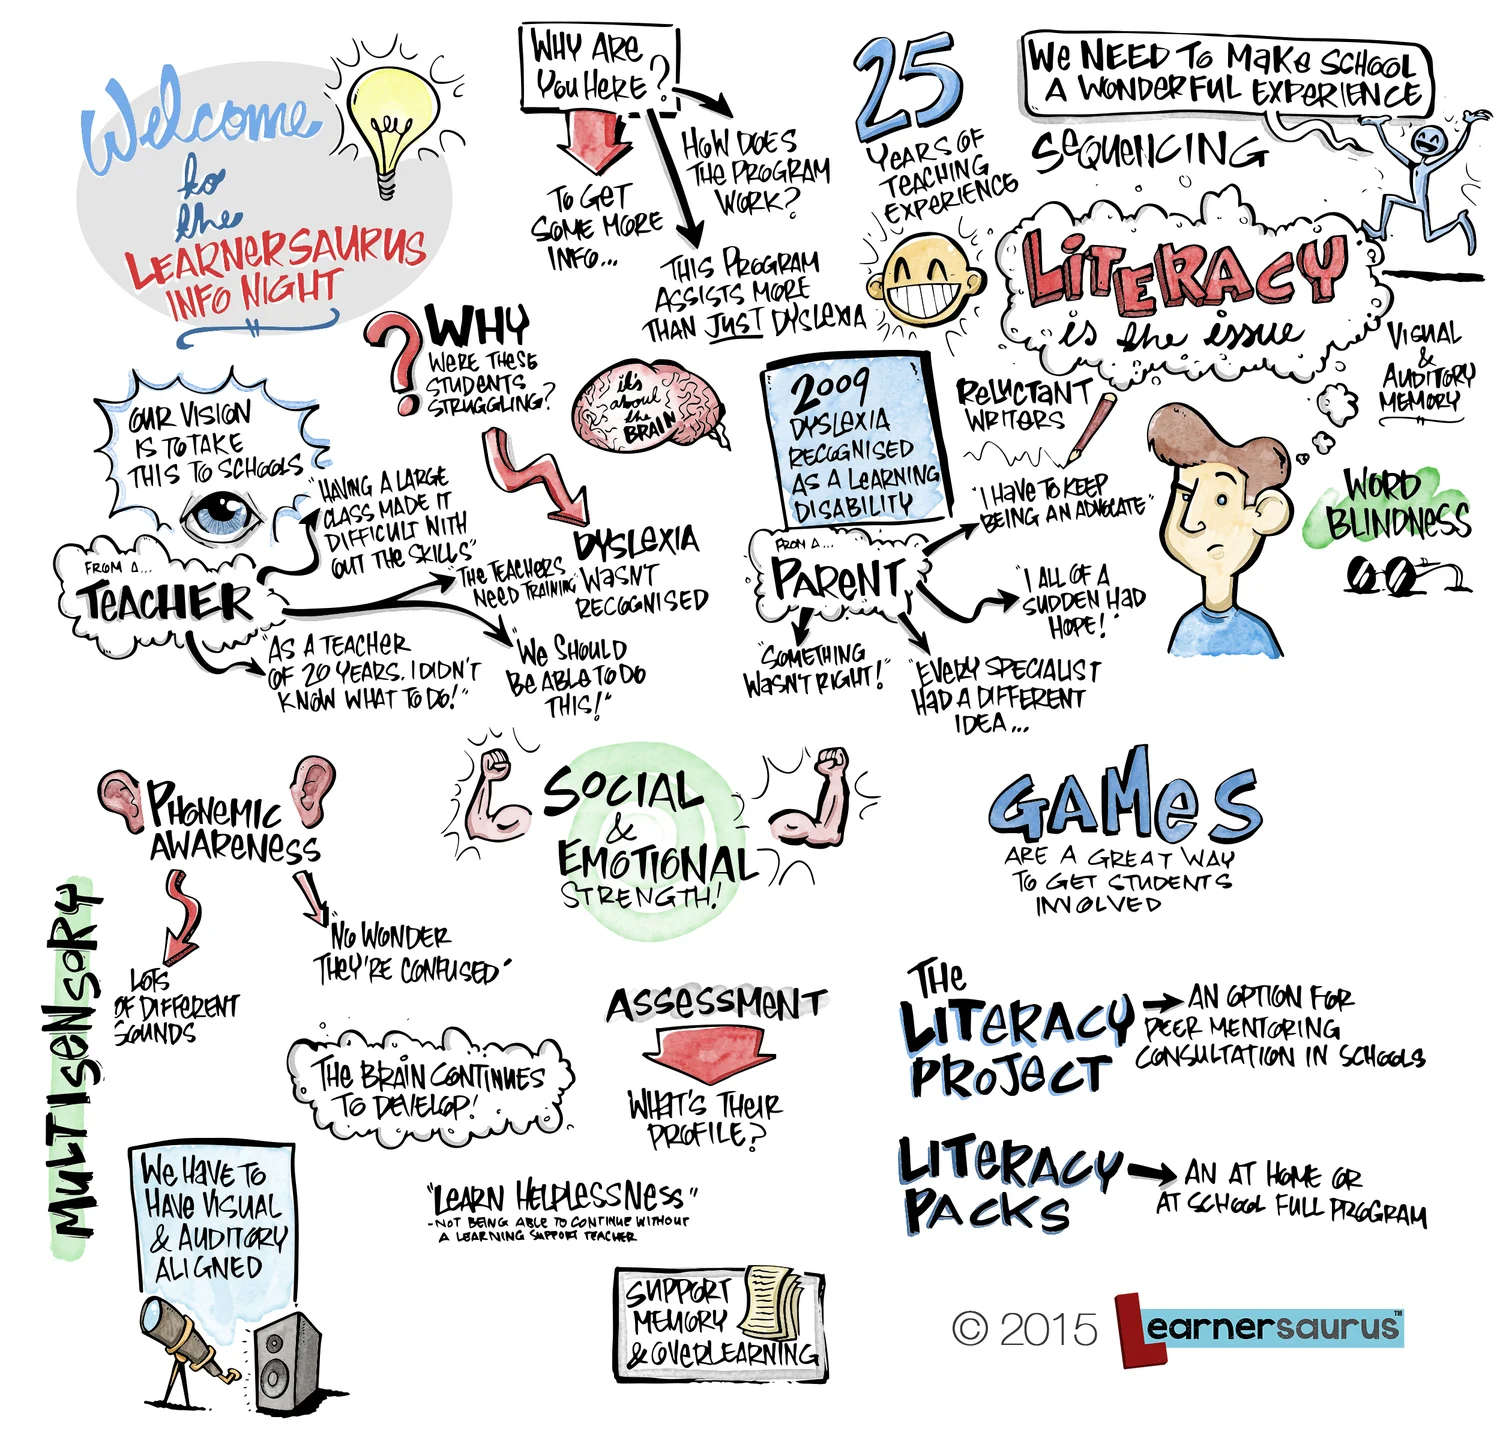 Welcome
to
the
LEARNERSAURUS
INFO NIGHT
WHY ARE
YOU HERE?
TO GET
SOME MORE
INFO...
HOW DOES
THE PROGRAM
WORK?
THIS PROGRAM
ASSISTS MORE
THAN JUST DYSLEXIA
25
YEARS OF
TEACHING
EXPERIENCE
WE NEED TO MAKE SCHOOL
A WONDERFUL EXPERIENCE
SEQUENCING
LITERACY
is the issue
VISUAL
&
AUDITORY
MEMORY
WHY
WERE THESE
STUDENTS
STRUGGLING?
it's
about
the
BRAIN
DYSLEXIA
WASN'T
RECOGNISED
2009
DYSLEXIA
RECOGNISED
AS A LEARNING
DISABILITY
RELUCTANT
WRITERS
WORD
BLINDNESS
OUR VISION
IS TO TAKE
THIS TO SCHOOLS
FROM A...
TEACHER
"HAVING A LARGE
CLASS MADE IT
DIFFICULT WITH
OUT THE SKILLS"
"THE TEACHERS
NEED TRAINING"
"AS A TEACHER
OF 20 YEARS. I DIDN'T
KNOW WHAT TO DO!"
"WE SHOULD
BE ABLE TO DO
THIS!"
FROM A...
PARENT
"I HAVE TO KEEP
BEING AN ADVOCATE"
"I ALL OF A
SUDDEN HAD
HOPE!"
"SOMETHING
WASN'T RIGHT!"
"EVERY SPECIALIST
HAD A DIFFERENT
IDEA...
PHONEMIC
AWARENESS
LOTS
OF DIFFERENT
SOUNDS
"NO WONDER
THEY'RE CONFUSED"
MULTISENSORY
SOCIAL
&
EMOTIONAL
STRENGTH!
GAMES
ARE A GREAT WAY
TO GET STUDENTS
INVOLVED
THE BRAIN CONTINUES
TO DEVELOP!
ASSESSMENT
WHAT'S THEIR
PROFILE?
THE
LITERACY
PROJECT
AN OPTION FOR
PEER MENTORING
CONSULTATION IN SCHOOLS
LITERACY
PACKS
AN AT HOME OR
AT SCHOOL FULL PROGRAM
WE HAVE TO
HAVE VISUAL
& AUDITORY
ALIGNED
"LEARN HELPLESSNESS"
-NOT BEING ABLE TO CONTINUE WITHOUT
A LEARNING SUPPORT TEACHER
SUPPORT
MEMORY
& OVERLEARNING
© 2015 Learnersaurus™